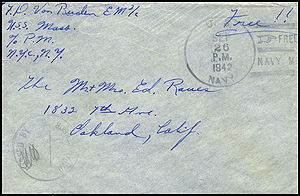 F.P. Von Ruden EM 2/c
U.S.S. Mass.
c/o P.M.
N.Y.C., N.Y.
Free !!
26
P.M.
1942
NAVY
FREE
NAVY
The Mr & Mrs. Ed.
1832 7th Ave.
Oakland, Calif.